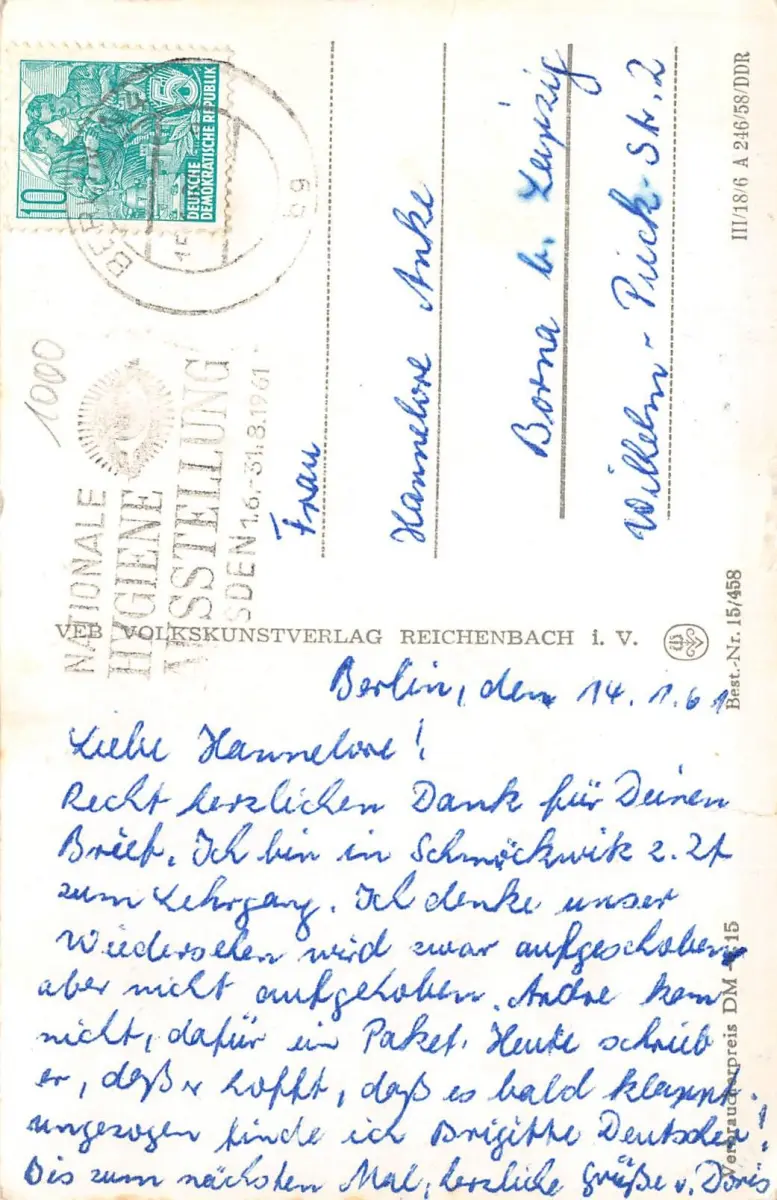 10
5
DEUTSCHE
DEMOKRATISCHE REPUBLIK
BERLIN
bg
1000
NATIONALE
HYGIENE
AUSSTELLUNG
SDEN 1.6.-31.8.1961
Frau
Hannelore Anke
Borna b. Leipzig
Wilhelm-Pieck-Str. 2
III/18/6 A 246/58/DDR
VEB VOLKSKUNSTVERLAG REICHENBACH i. V.
Best.-Nr. 15/458
Verbraucherpreis DM 15
Berlin, den 14.1.61
Liebe Hannelore!
Recht herzlichen Dank für Deinen
Brief. Ich bin in Schmöckwitz z. Zt
zum Lehrgang. Ich denke unser
Wiedersehen wird zwar aufgeschoben
aber nicht aufgehoben. Andre kam
nicht, dafür ein Paket. Heute schrieb
er, daß er hofft, daß es bald klappt.
ungezogen finde ich Brigitte Deutscher!
Bis zum nächsten Mal, herzliche Grüße v. Doris